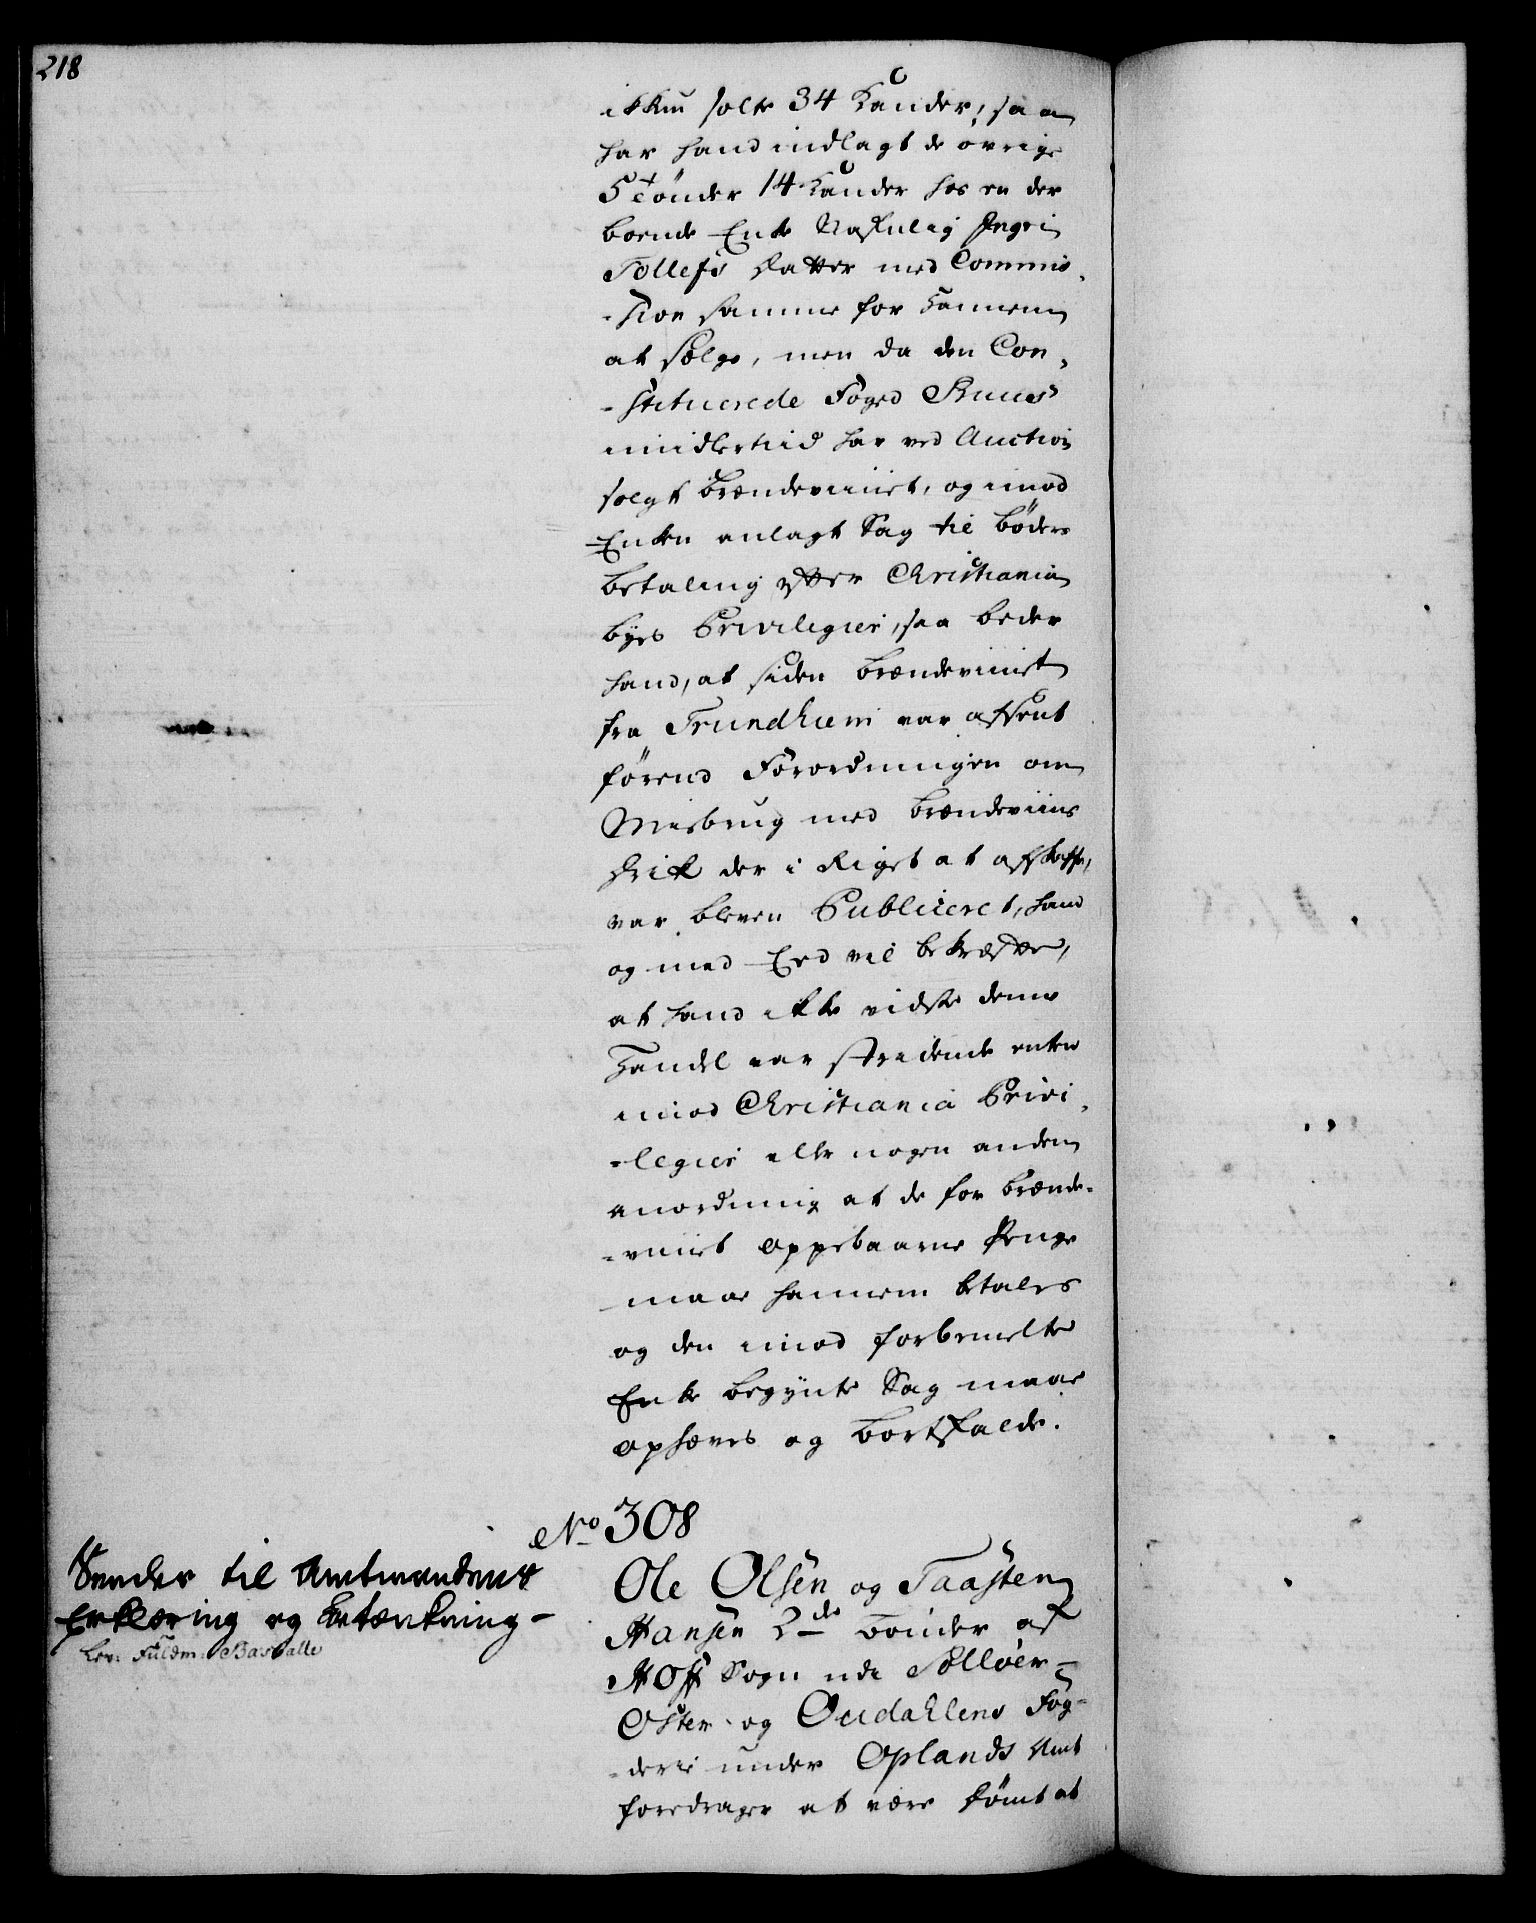 218
ikkun solte 34 Kander, saa
har hand indlagt de øvrige
5 Tønder 14 Kander hos en der
boende Enke Nafnlig Ingri
Tollefs Datter med Commis-
-sion samme for hannem
at sælge, men da den Con-
-stituerede Foged
imidlertiid har ved Auction
solgt brændeviinet, og imod
Enken anlagt Sag til bøders
betaling efter Christiania
byes Privilegier, saa beder
hand, at siden brændeviinet
fra Trundhiem var afsent
førend Forordningen om
Misbrug med brændeviins
drik der i Riget at afskaffe,
var bleven Publiceret, hand
og med Eed vil bekræfte,
at hand ikke vidste denne
Handel var stridende enten
imod Christiania Privi-
-legier eller nogen anden
anordning at de for brænde-
-viinet oppebaarne Penge
maae hannem betales
og den imod forbemelte
Enke begynte Sag maae
ophæves og bortfalde.
No 308
Sendes til Amtmandens
Erklæring og betænkning-
Lev: Fuldm:
Ole Olsen og Taasten
Hansen 2de bønder af
Hoff Sogn udi Solløer-
Oster- og Oudahlens Fog-
-derie under Oplands Amt
foredrager at være dømt at